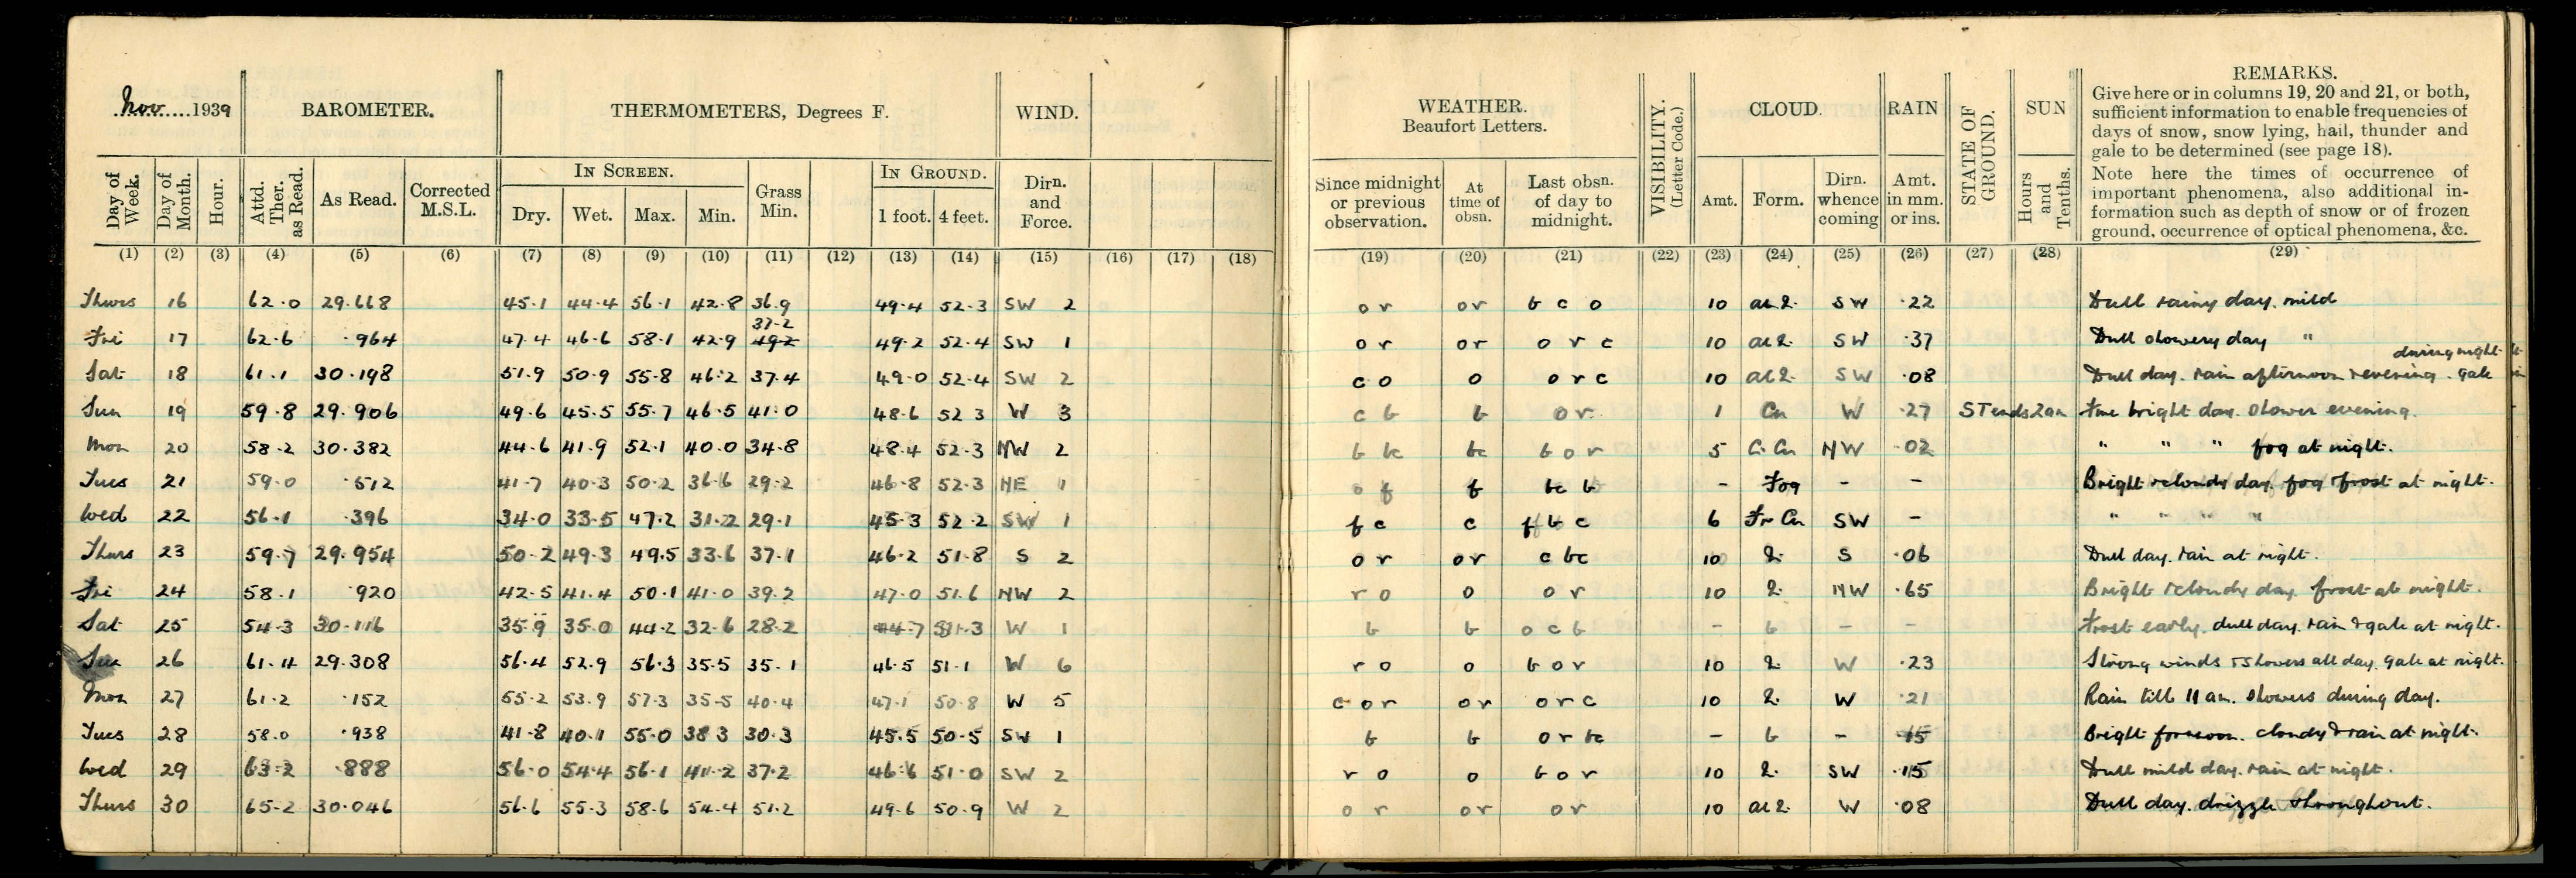 Nov. 1939 BAROMETER. THERMOMETERS, Degrees F. WIND. WEATHER. Beaufort Letters. VISIBILITY. (Letter Code.) CLOUD. RAIN STATE OF GROUND. SUN REMARKS.
Give here or in columns 19, 20 and 21, or both,
sufficient information to enable frequencies of
days of snow, snow lying, hail, thunder and
gale to be determined (see page 18).
Note here the times of occurrence of
important phenomena, also additional in-
formation such as depth of snow or of frozen
ground, occurrence of optical phenomena, &c.
Day of Week. Day of Month. Hour. Attd. Ther. as Read. As Read. Corrected M.S.L. IN SCREEN. Dry. Wet. Max. Min. Grass Min. IN GROUND. 1 foot. 4 feet. Dirn. and Force. Since midnight or previous observation. At time of obsn. Last obsn. of day to midnight. Amt. Form. Dirn. whence coming Amt. in mm. or ins. Hours and Tenths.
(1) (2) (3) (4) (5) (6) (7) (8) (9) (10) (11) (12) (13) (14) (15) (16) (17) (18) (19) (20) (21) (22) (23) (24) (25) (26) (27) (28) (29)
Thurs 16 62.0 29.668 45.1 44.4 56.1 42.8 36.9 49.4 52.3 SW 2 o r o r b c o 10 SW .22 Dull rainy day. mild
37.2
Fri 17 62.6 .964 47.4 46.6 58.1 42.9 49.2 49.2 52.4 SW 1 o r o r o r c 10 SW .37 Dull showery day "
during night
Sat 18 61.1 30.198 51.9 50.9 55.8 46.2 37.4 49.0 52.4 SW 2 c o o o r c 10 SW .08 Dull day. rain afternoon & evening. gale
Sun 19 59.8 29.906 49.6 45.5 55.7 46.5 41.0 48.6 52.3 W 3 c b b o r 1 Cu W .27 ST ends 2am Fine bright day. Shower evening.
Mon 20 58.2 30.382 44.6 41.9 52.1 40.0 34.8 48.4 52.3 NW 2 b bc bc b o r 5 NW .02 " " " fog at night.
Tues 21 59.0 .512 41.7 40.3 50.2 36.6 29.2 46.8 52.3 NE 1 o f f bc b - Fog - - Bright & cloudy day. fog & frost at night.
Wed 22 56.1 .396 34.0 33.5 47.2 31.2 29.1 45.3 52.2 SW 1 f c c f b c 6 Fr Cu SW - " " " "
Thurs 23 59.7 29.954 50.2 49.3 49.5 33.6 37.1 46.2 51.8 S 2 o r o r c bc 10 S .06 Dull day. rain at night.
Fri 24 58.1 .920 42.5 41.4 50.1 41.0 39.2 47.0 51.6 NW 2 r o o o r 10 NW .65 Bright & cloudy day. frost at night.
Sat 25 54.3 30.116 35.9 35.0 44.2 32.6 28.2 44.7 51.3 W 1 b b o c b - b - - Frost early. dull day. rain & gale at night.
Sun 26 61.4 29.308 56.4 52.9 56.3 35.5 35.1 46.5 51.1 W 6 r o o b o r 10 W .23 Strong winds & showers all day. gale at night.
Mon 27 61.2 .152 55.2 53.9 57.3 35.5 40.4 47.1 50.8 W 5 c o r o r o r c 10 W .21 Rain till 11 am. Showers during day.
Tues 28 58.0 .938 41.8 40.1 55.0 38.3 30.3 45.5 50.5 SW 1 b b o r bc - b - .15 Bright forenoon. cloudy & rain at night.
Wed 29 63.2 .888 56.0 54.4 56.1 41.2 37.2 46.6 51.0 SW 2 r o o b o r 10 SW .15 Dull mild day. rain at night.
Thurs 30 65.2 30.046 56.6 55.3 58.6 54.4 51.2 49.6 50.9 W 2 o r o r o r 10 W .08 Dull day. drizzle throughout.